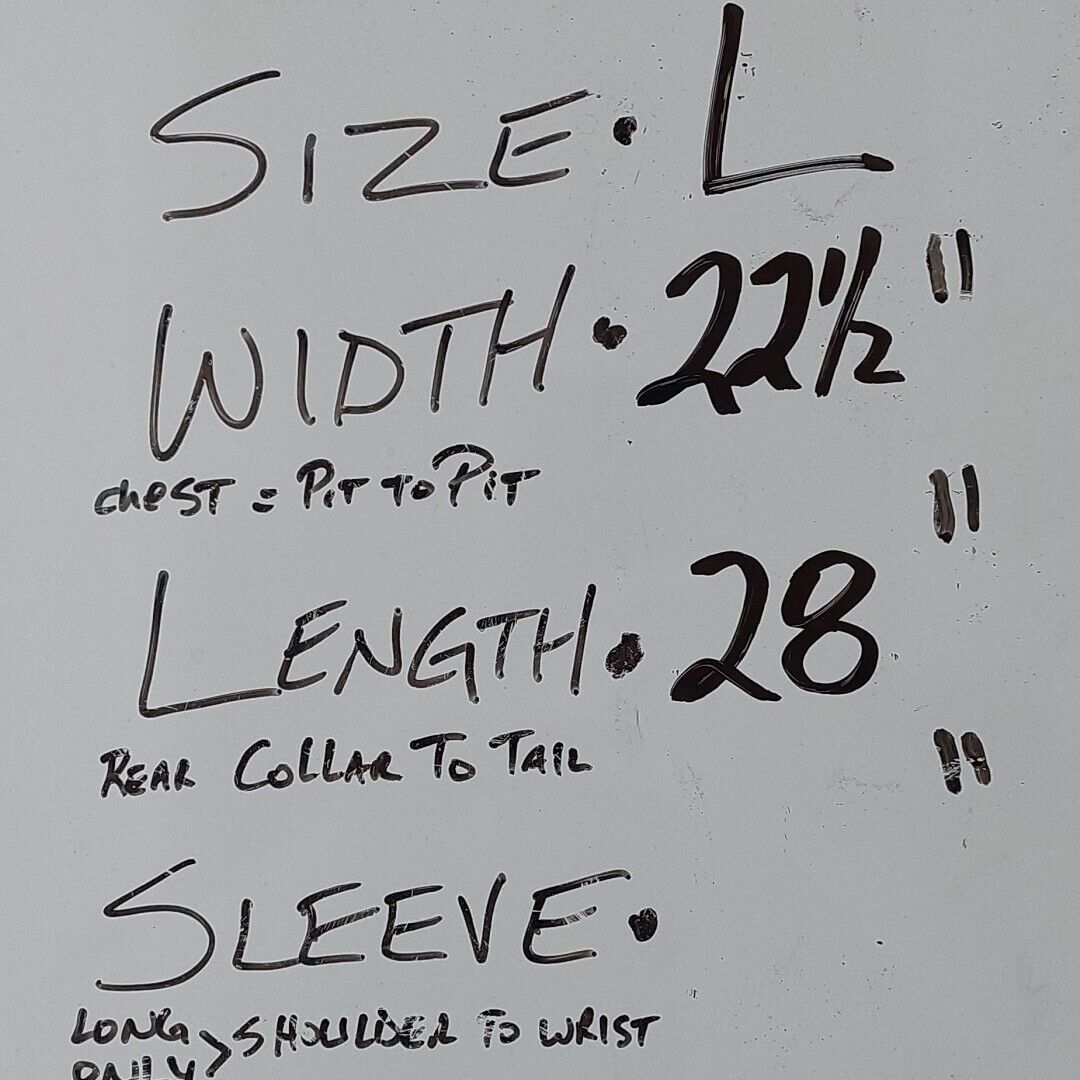 SIZE. L
WIDTH. 22 1/2 "
chest = Pit to Pit
"
LENGTH. 28
REAR COLLAR TO TAIL
"
SLEEVE.
LONG > SHOULDER TO WRIST
ONLY